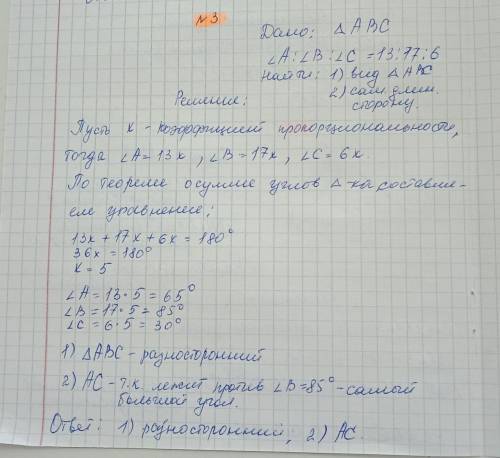 № 3.
Дано: △ ABC
∠A:∠B:∠C = 13:17:6
Найти: 1) вид △ ABC
2) сам. длин. сторону.
Решение:
Пусть x - коэффициент пропорциональности,
тогда ∠A = 13x, ∠B = 17x, ∠C = 6x.
По теореме о сумме углов △-ка составля-
ем уравнение:
13x + 17x + 6x = 180°
36x = 180°
x = 5
∠A = 13 · 5 = 65°
∠B = 17 · 5 = 85°
∠C = 6 · 5 = 30°
1) △ABC - разносторонний
2) AC - т.к. лежит против ∠B = 85° - самый
большой угол.
Ответ: 1) разносторонний; 2) AC.